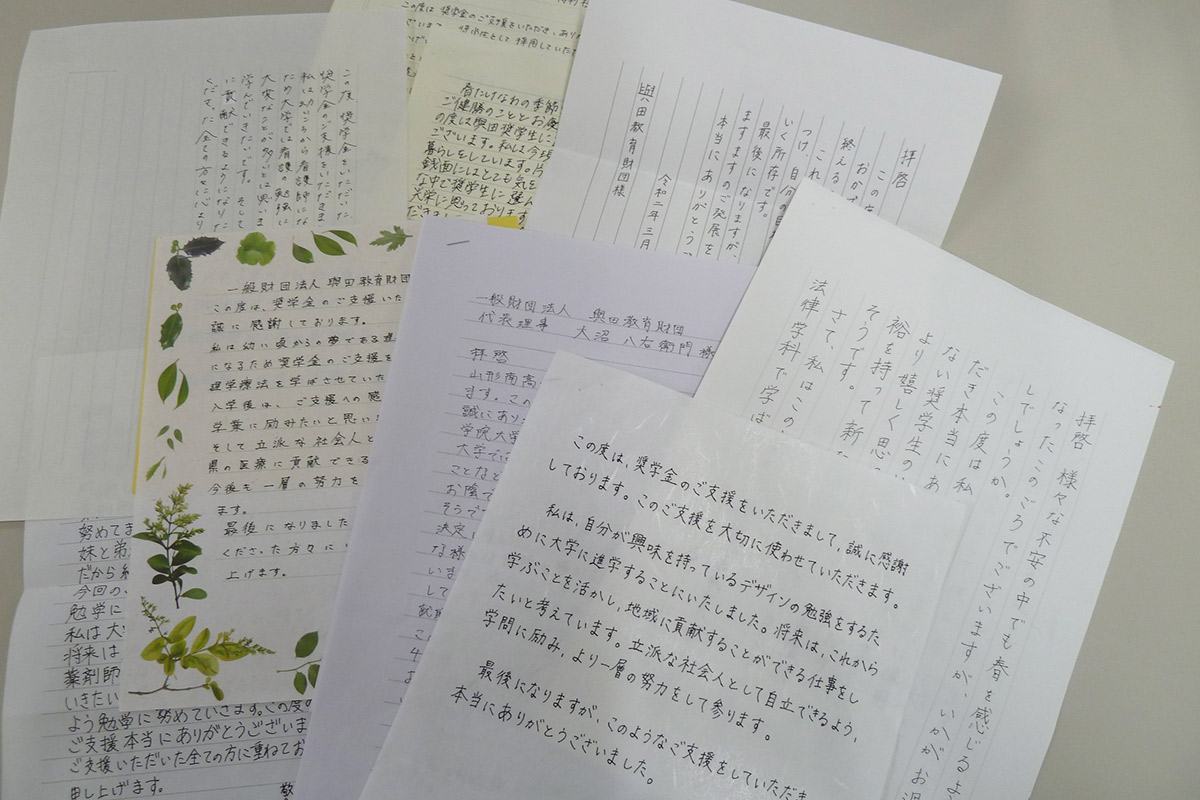 この度は奨学金のご支援をいただき、あり
として採用していた
この度、奨学金をいただいた
奨学金のご支援をいただきま
私は幼いころから看護師にな
ため大学では看護の勉強に
大変なことが多いとは思いま
学んでいきたいです。そして
に貢献できるようになりた
くださった全ての方々に
春たけなわの季節
ご健勝のこととお慶
の度は與田奨学生に
ございます。私は今
暮らしをしています。
銭面にはとても気を
な中で奨学生に選ん
光栄に思っております
拝啓
この
おかげ
終える
これ
つけ、自分の目
いく所存です。
最後になりますが、
ますますのご発展を
本当にありがとうご
令和二年三月
與田教育財団様
一般財団法人 與田教育財団
この度は、奨学金のご支援いた
誠に感謝しております。
私は幼い頃からの夢である理
になるため奨学金のご支援を
理学療法を学ばさせていた
入学後は、ご支援への感
学業に励みたいと思い
そして立派な社会人と
県の医療に貢献できる
今後も一層の努力を
ます。
最後になりました
くださった方々に
上げます。
一般財団法人 與田教育財団
代表理事 大沼 八右衛門 様
拝啓
山形南高
ます。この
誠にあり
学院大学
大学では
ことなど
お陰で
そうで
決定
な様
いま
して
拝啓 様々な不安の中でも春を感じるよ
なったこのごろでございますが、いかがお過
しでしょうか。
この度は私
だき本当にあ
ない奨学生の
より嬉しく思
裕を持って新た
そうです。
さて、私はこの
法律学科で学ば
この度は、奨学金のご支援をいただきまして、誠に感謝
しております。このご支援を大切に使わせていただきます。
私は、自分が興味を持っているデザインの勉強をするた
めに大学に進学することにいたしました。将来は、これから
学ぶことを活かし、地域に貢献することができる仕事をし
たいと考えています。立派な社会人として自立できるよう、
学問に励み、より一層の努力をして参ります。
最後になりますが、このようなご支援をしていただき
本当にありがとうございました。
努めてま
妹と弟
だから
今回の
勉学に
私は大
将来は
薬剤師
いきたい
よう勉学に努めていきます。この度の
ご支援本当にありがとうございま
ご支援いただいた全ての方に重ねてお
申し上げます。
敬